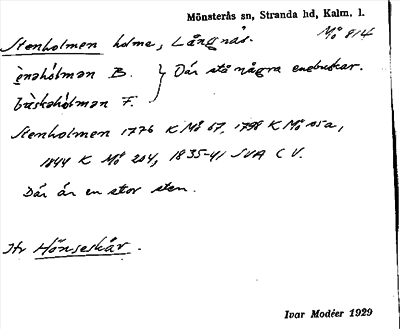 Mönsterås sn, Stranda hd, Kalm. l.
Stenholmen holme, Långnäs. Mö 814
ènəhólmən B. } Där stå några enebuskar.
bùskəhólmən F.
Stenholmen 1776 K Mö 67, 1798 K Mö 105a,
1844 K Mö 204, 1835-41 SVA C V.
Där är en stor sten.
Hr Hönseskär.
Ivar Modéer 1929